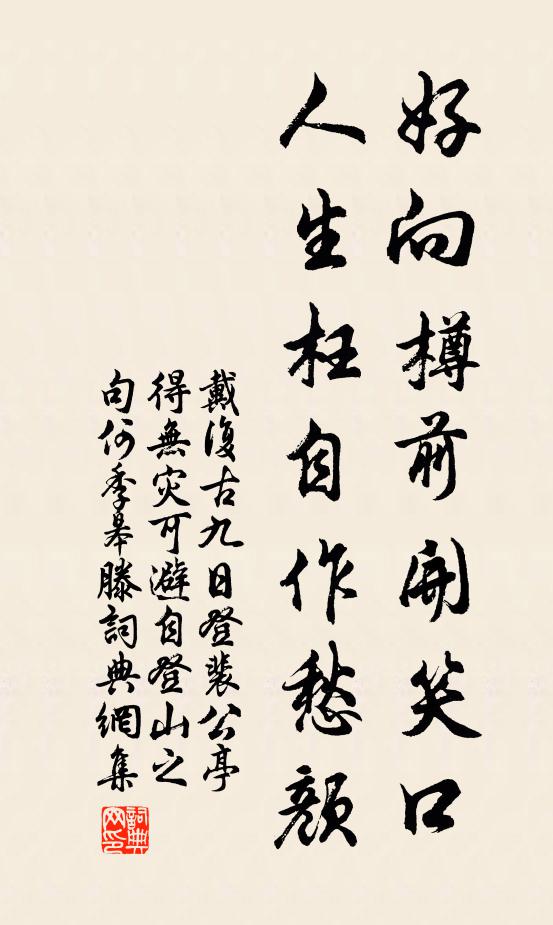 好向樽前開笑口
人生枉自作愁顏
戴復古九日登裴公亭
得無灾可避自登山之
句何季皋滕詞典網集
詞典
网印